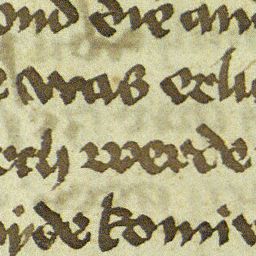 ond die an
was erlu
ch werde
de komi